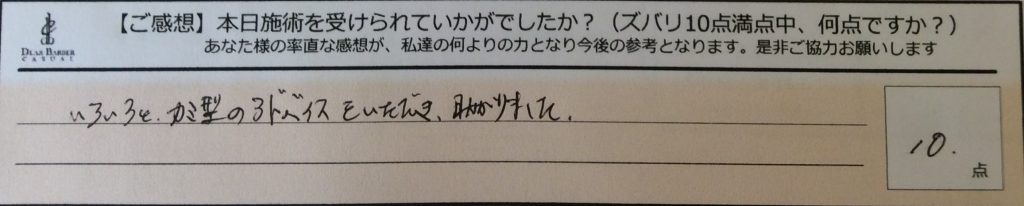 【ご感想】本日施術を受けられていかがでしたか？（ズバリ10点満点中、何点ですか？）
あなた様の率直な感想が、私達の何よりの力となり今後の参考となります。是非ご協力お願いします
DEAR BARBER
CASUAL
いろいろと、カミ型のアドバイスをいただき、助かりました。
10.
点